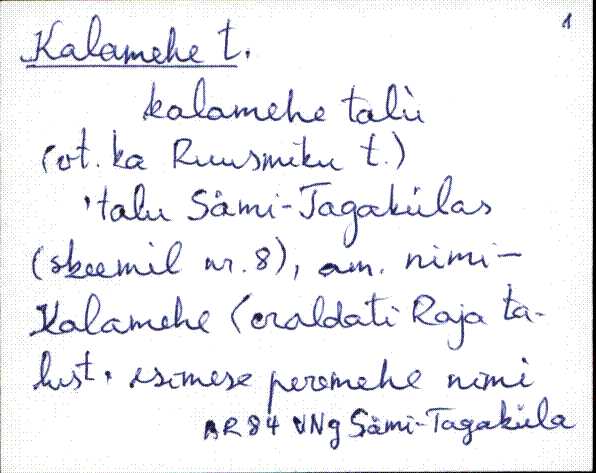 1
Kalamehe t.
kalamehe talù
(vt. ka Ruusmiku t.)
'talu Sämi-Tagakülas
(skeemil nr. 8), am. nimi-
Kalamehe (eraldati Raja ta-
lust. esimese peremehe nimi
AR 84 VNg Sämi-Tagaküla